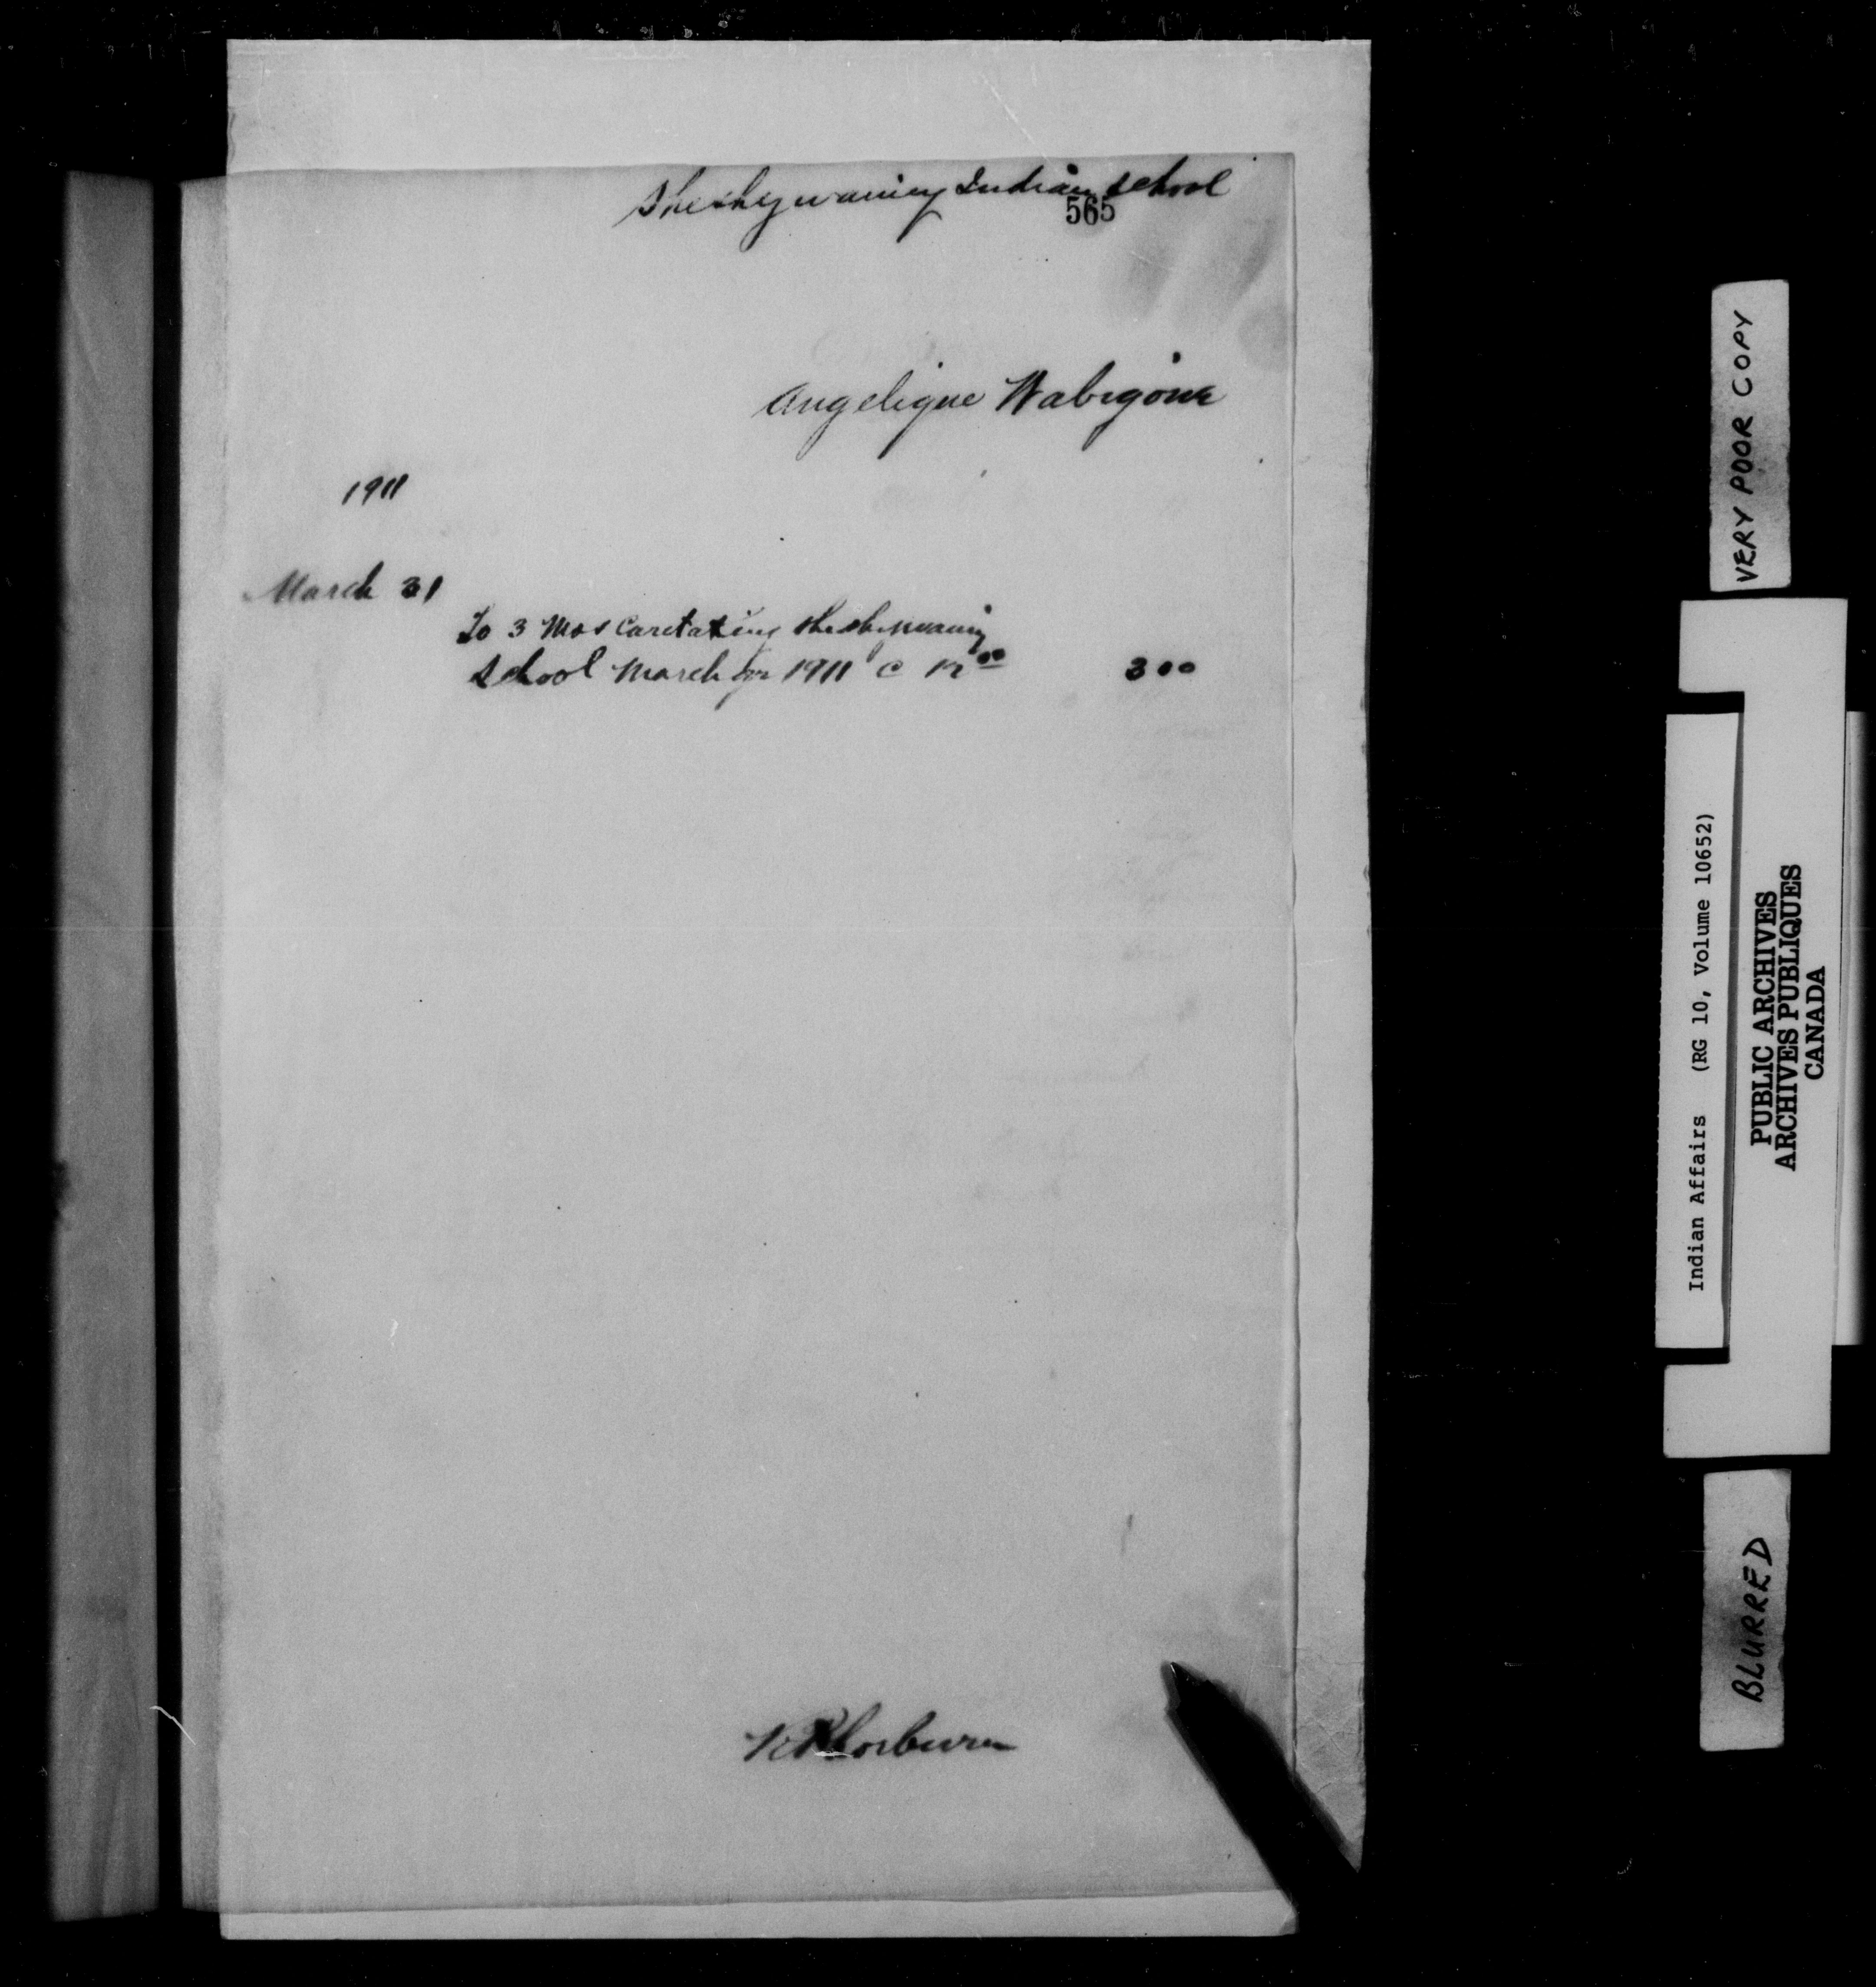 Sheshegwaning Indian School
565
Angelique Wabigous
1911
March 31
To 3 Mos Caretaking Sheshegwaning
School March qr 1911 @ 12 00 3 00
R Thorburn
VERY POOR COPY
Indian Affairs (RG 10, Volume 10652)
PUBLIC ARCHIVES
ARCHIVES PUBLIQUES
CANADA
BLURRED